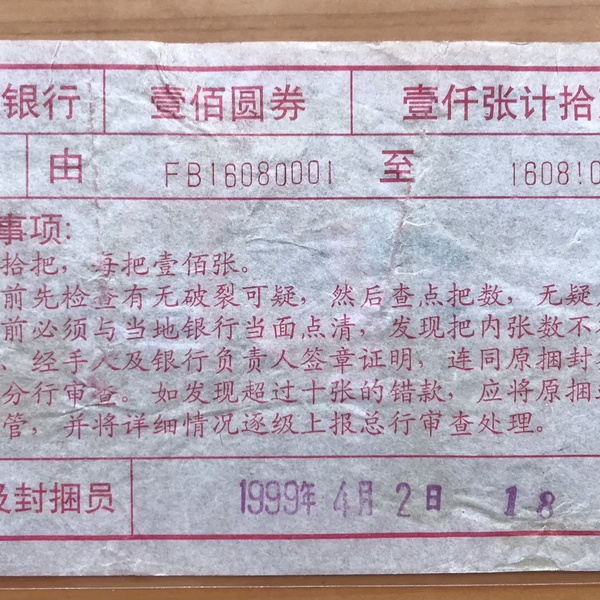 银行 壹佰圆券 壹仟张计拾
由 FB16080001 至 160810
事项:
拾把，每把壹佰张。
前先检查有无破裂可疑，然后查点把数，无疑
前必须与当地银行当面点清，发现把内张数不
、经手人及银行负责人签章证明，连同原捆封
分行审查。如发现超过十张的错款，应将原捆
管，并将详细情况逐级上报总行审查处理。
封捆员 1999年 4月 2日 18